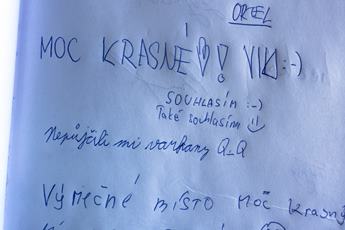 ORTEL
MOC KRASNÉ!! VIKI :-)
SOUHLASÍM :-)
Také souhlasím
Nepůjčili mi varhany Q_Q
Výmečné místo moc krasný